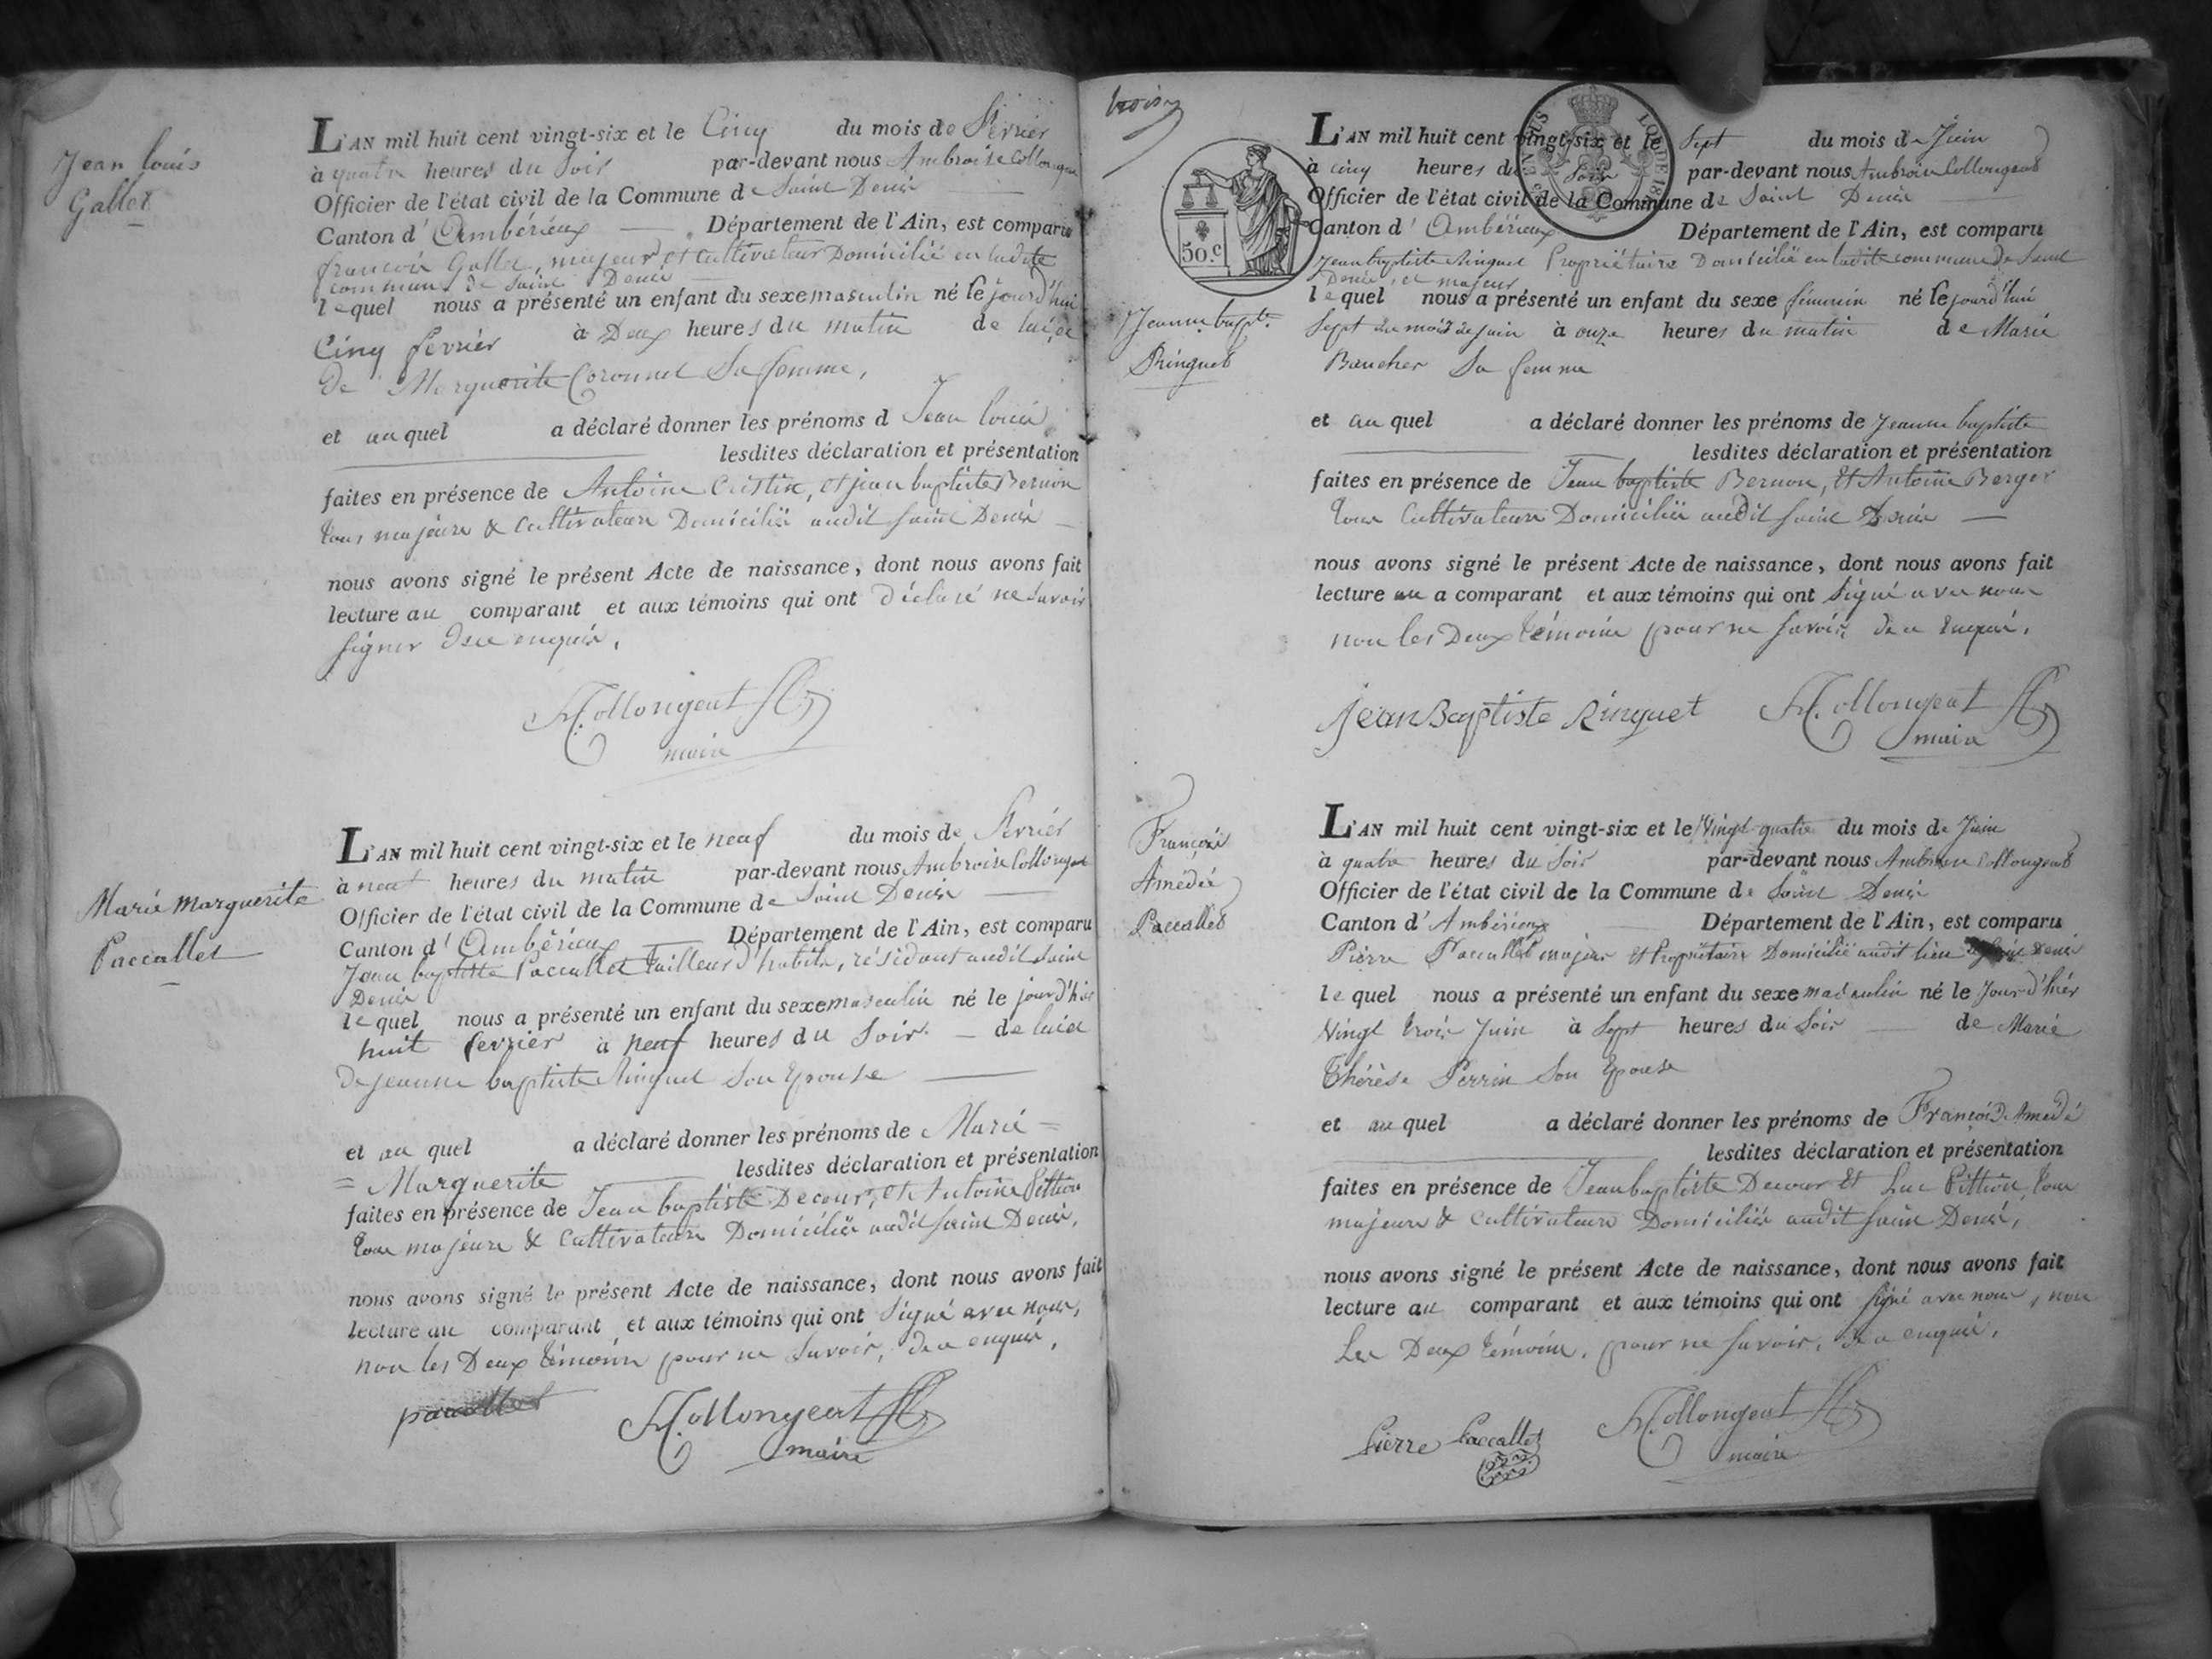 Jean Louis
Gallet
L'AN mil huit cent vingt-six et le Cinq du mois de Février
à quatre heures du Soir par-devant nous Ambroise Collongeat
Officier de l'état civil de la Commune de Saint Denis
Canton d'Ambérieux Département de l'Ain, est comparu
françois Gallet, majeur et Cultivateur Domicilié en ladite
commune de Saint Denis
lequel nous a présenté un enfant du sexe masculin né le jourd'hui
Cinq fevrier à Deux heures du matin de lui et
de Marguerite Coronnet Sa femme,
et auquel a déclaré donner les prénoms d Jean Louis
lesdites déclaration et présentation
faites en présence de Antoine Cristin, et jean baptiste Bernon
tous majeurs & Cultivateurs Domiciliés audit Saint Denis
nous avons signé le présent Acte de naissance, dont nous avons fait
lecture au comparant et aux témoins qui ont déclaré ne Savoir
signer de ce enquis,
A. Collongeat
maire
Marie Marguerite
Paccallet
L'AN mil huit cent vingt-six et le neuf du mois de Février
à neuf heures du matin par-devant nous Ambroise Collongeat
Officier de l'état civil de la Commune de Saint Denis
Canton d'Ambérieux Département de l'Ain, est comparu
Jean baptiste Paccallet tailleur d'habits, résidant audit Saint
Denis
lequel nous a présenté un enfant du sexe masculin né le jourd'hier
huit fevrier à Neuf heures du Soir de lui et
de jeanne baptiste Ringuet Son Epouse
et au quel a déclaré donner les prénoms de Marie =
= Marguerite lesdites déclaration et présentation
faites en présence de Jean baptiste Decour, et Antoine Pittion
tous majeurs & Cultivateurs Domiciliés audit Saint Denis,
nous avons signé le présent Acte de naissance, dont nous avons fait
lecture au comparant et aux témoins qui ont Signé avec nous,
non les Deux témoins pour ne Savoir, de ce enquis,
paccallet
A. Collongeat
maire
trois
PARIS
LOI DE 18
50.c
Jeanne bapte.
Ringuet
L'AN mil huit cent vingt-six et le Sept du mois de Juin
à cinq heures du Soir par-devant nous Ambroise Collongeat
Officier de l'état civil de la Commune de Saint Denis
Canton d'Ambérieux Département de l'Ain, est comparu
Jean baptiste Ringuet Propriétaire Domicilié en ladite commune de Saint
Denis, et majeur
lequel nous a présenté un enfant du sexe féminin né le jourd'hui
Sept du mois de juin à onze heures du matin de Marie
Baucher Sa femme
et auquel a déclaré donner les prénoms de Jeanne baptiste
lesdites déclaration et présentation
faites en présence de Jean baptiste Bernon, et Antoine Berger
tous Cultivateurs Domiciliés audit Saint Denis
nous avons signé le présent Acte de naissance, dont nous avons fait
lecture au a comparant et aux témoins qui ont Signé avec nous
non les Deux témoins pour ne Savoir de ce Enquis.
Jean Baptiste Ringuet
A. Collongeat
maire
François
Amédée
Paccallet
L'AN mil huit cent vingt-six et le Vingt quatre du mois de Juin
à quatre heures du Soir par-devant nous Ambroise Collongeat
Officier de l'état civil de la Commune de Saint Denis
Canton d'Ambérieux Département de l'Ain, est comparu
Pierre Paccallet majeur et Propriétaire Domicilié audit lieu de Saint Denis
lequel nous a présenté un enfant du sexe masculin né le Jour d'hier
Vingt trois Juin à Sept heures du Soir de Marie
Thérèse Perrin Son Epouse
et au quel a déclaré donner les prénoms de François Amédé
lesdites déclaration et présentation
faites en présence de Jean baptiste Decour et Luc Pittion, tous
majeurs & Cultivateurs Domiciliés audit Saint Denis,
nous avons signé le présent Acte de naissance, dont nous avons fait
lecture au comparant et aux témoins qui ont signé avec nous, non
Les Deux témoins, pour ne Savoir, de ce enquis.
Pierre Paccallet
A. Collongeat
maire